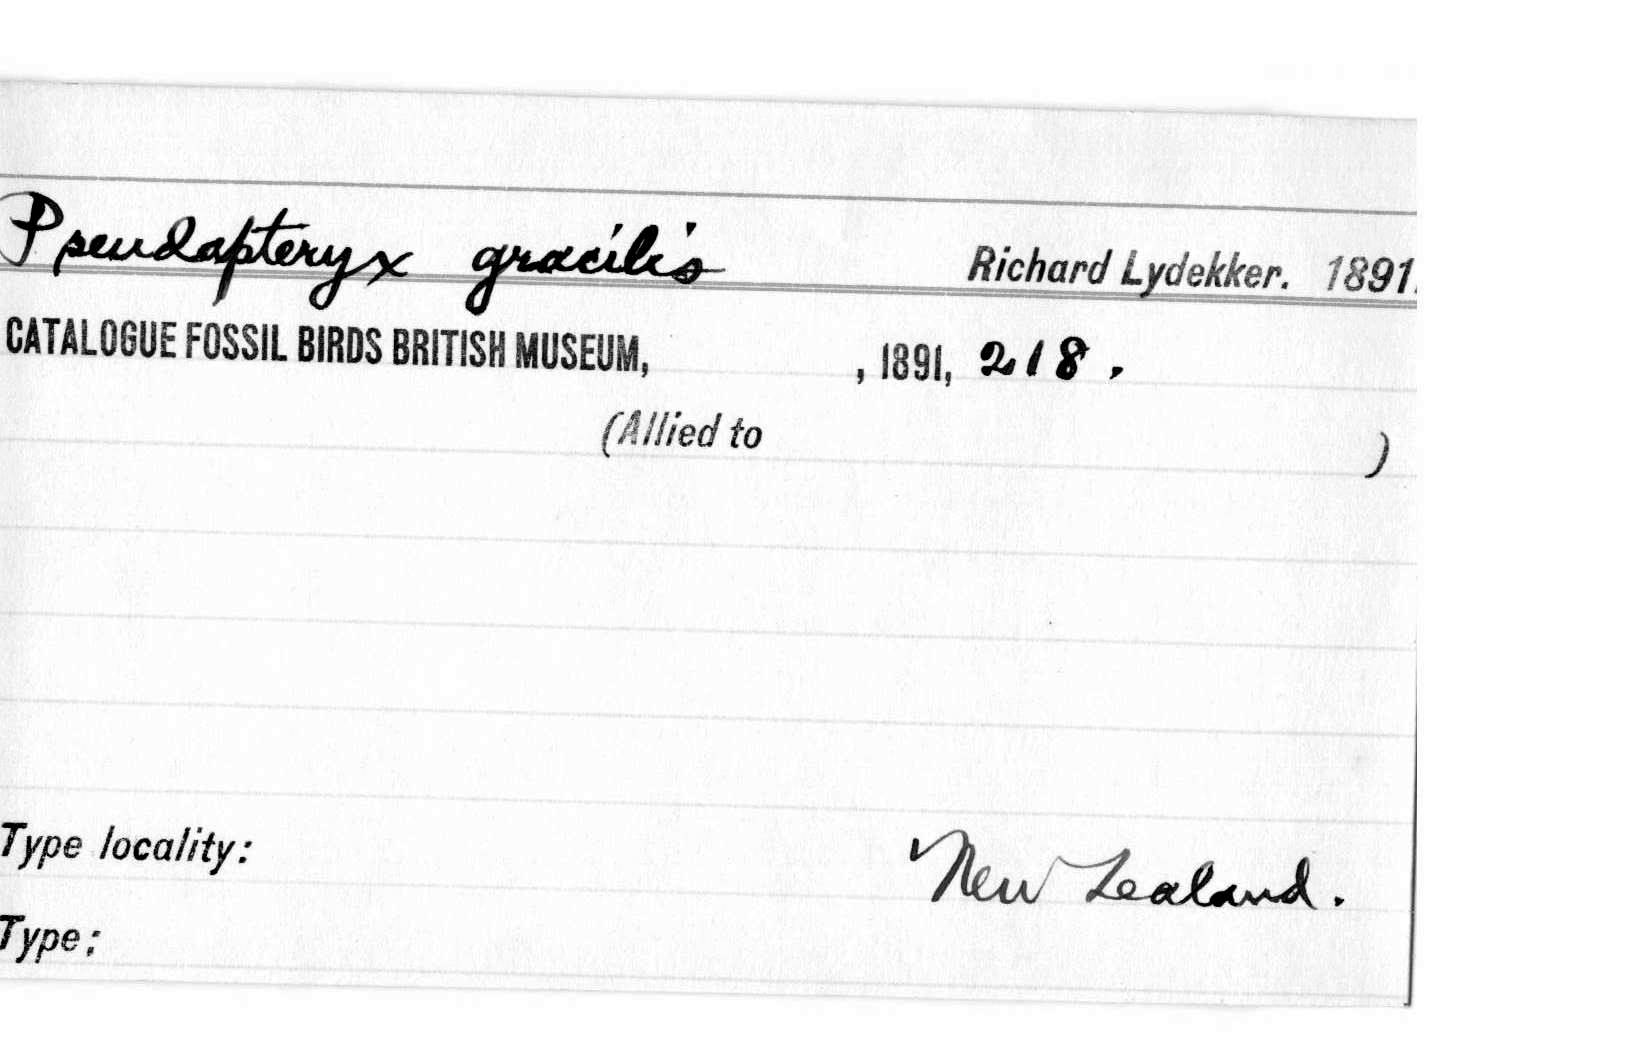 Pseudapteryx gracilis Richard Lydekker. 1891.
CATALOGUE FOSSIL BIRDS BRITISH MUSEUM, , 1891, 218.
(Allied to )
Type locality: New Zealand.
Type: